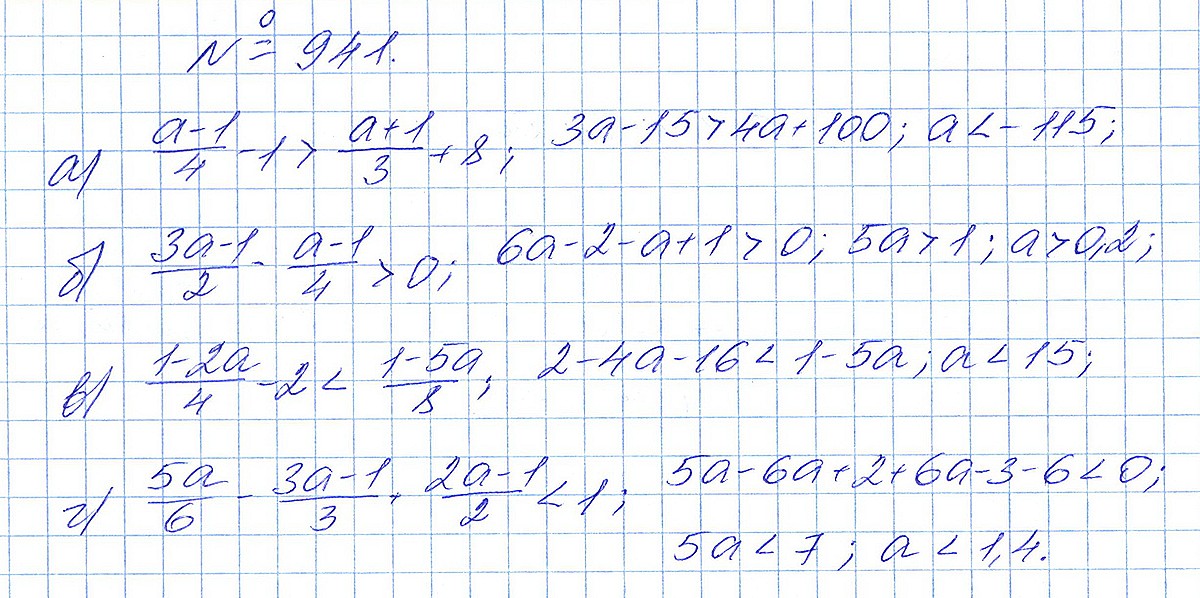 № 941.
а) (a-1)/4 - 1 > (a+1)/3 + 8; 3a-15>4a+100; a<-115;
б) (3a-1)/2 - (a-1)/4 > 0; 6a-2-a+1>0; 5a>1; a>0,2;
в) (1-2a)/4 - 2 < (1-5a)/8; 2-4a-16<1-5a; a<15;
г) 5a/6 - (3a-1)/3 + (2a-1)/2 < 1; 5a-6a+2+6a-3-6<0;
5a<7; a<1,4.